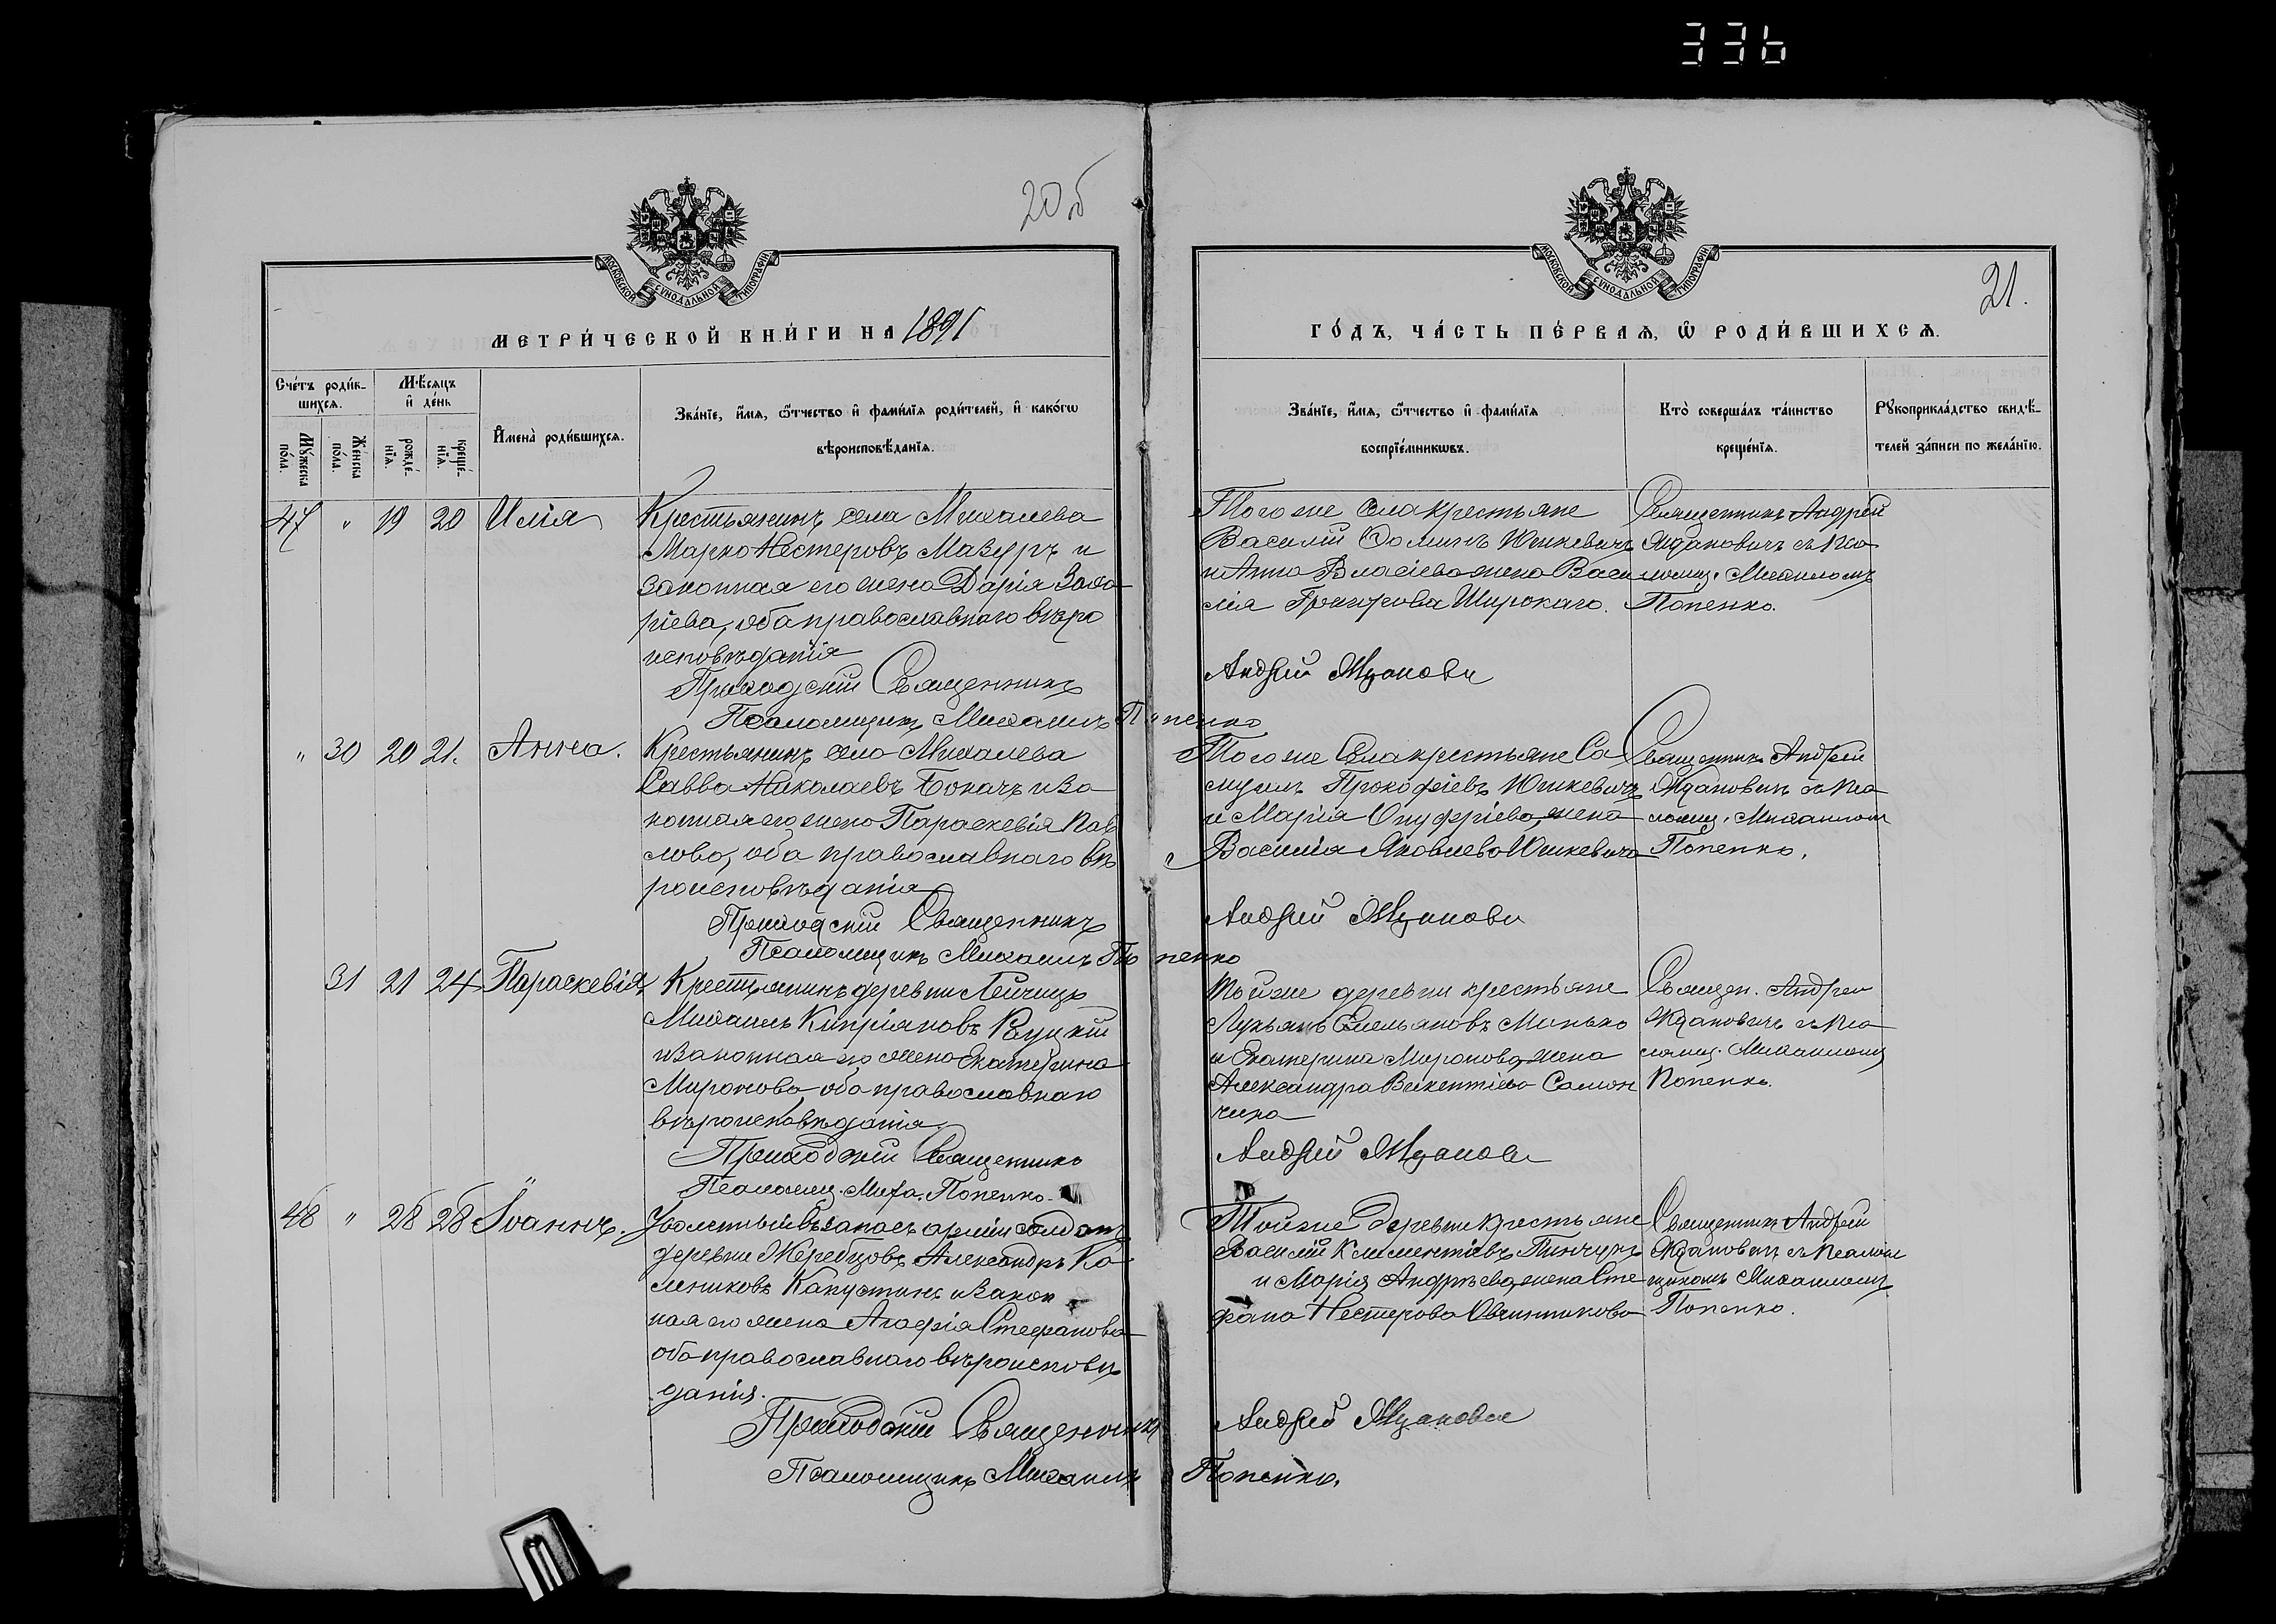 336
20об
МОСКОВСКОЙ СѴНОДАЛЬНОЙ ТИПОГРАФІИ
МЕТРИ́ЧЕСКОЙ КНИ́ГИ НА 1891
Сче́тъ роди́в-
шихся.
Мѣ́сяцъ
и҆ де́нь
Мꙋ́жеска
по́ла.
Же́нска
по́ла.
рожде́-
нїѧ.
креще́-
нїѧ.
И҆мена̀ роди́вшихсѧ.
Зва́нїе, и҆́мѧ, ѻ҆́тчество и҆ фами́лїѧ роди́телей, и҆ како́гѡ
вѣроисповѣ́данїѧ.
47 " 19 20 Илія
Крестьянинъ села Михалева
Марко Нестеровъ Мазуръ и
законная его жена Дарія Заха
ріева, оба православнаго вѣро
исповѣданія
Приходскій Священникъ
Псаломщикъ Михаилъ Попенко
" 30 20 21. Анна.
Крестьянинъ села Михалева
Савва Николаевъ Боначъ и за
конная его жена Параскевія Пав
лова, оба православнаго вѣ
роисповѣданія
Приходскій Священникъ
Псаломщикъ Михаилъ Попенко
31 21 24 Параскевія
Крестьянинъ деревни Лейчицъ
Михаилъ Кипріяновъ Руцкій
и законная его жена Екатерина
Миронова оба православнаго
вѣроисповѣданія
Приходскій Священникъ
Псаломщ. Миха. Попенко.
48 " 28 28 Іоаннъ.
Уволенный въ запасъ арміи солдатъ
деревни Жеребцовъ Александръ Ка
лениковъ Капустинъ и закон
ная его жена Агафія Стефанова
оба православнаго вѣроисповѣ
данія.
Приходскій Священникъ
Псаломщикъ Михаилъ Попенко.
МОСКОВСКОЙ СѴНОДАЛЬНОЙ ТИПОГРАФІИ
21.
ГО́ДЪ, ЧА́СТЬ ПЕ́РВАѦ, Ѡ҆ РОДИ́ВШИХСѦ.
Зва́нїе, и҆́мѧ, ѻ҆́тчество и҆ фами́лїѧ
воспрїе́мникѡвъ.
Кто̀ соверша́лъ та́инство
креще́нїѧ.
Рꙋкоприкла́дство свидѣ́-
телей за́писи по жела́нїю.
Того же села крестьяне
Василій Фоминъ Юшкевичъ
и Анна Власіева жена Васи
лія Григорова Широкаго.
Священникъ Андрей
Ждановичъ съ Пса
ломщ. Михаиломъ
Попенко.
Андрей Жданови
Того же села крестьяне Са
муилъ Прокофіевъ Юшкевичъ
и Марія Онуфріева, жена
Василія Яковлева Юшкевича
Священникъ Андрей
Ждановичъ съ Пса
ломщ. Михаиломъ
Попенко.
Андрей Жданови
Той же деревни крестьяне
Лукьянъ Емельяновъ Манько
и Екатерина Миронова, жена
Александра Викентіева Самон
чика
Священ. Андрей
Ждановичъ съ Пса
ломщ. Михаиломъ
Попенко.
Андрей Жданови
Той же деревни крестьяне
Василій Климентіевъ Пинчукъ
и Марія Андреева, жена Сте
фана Нестерова Овчинникова
Священникъ Андрей
Ждановичъ съ Псалом
щикомъ Михаиломъ
Попенко.
Андрей Жданови